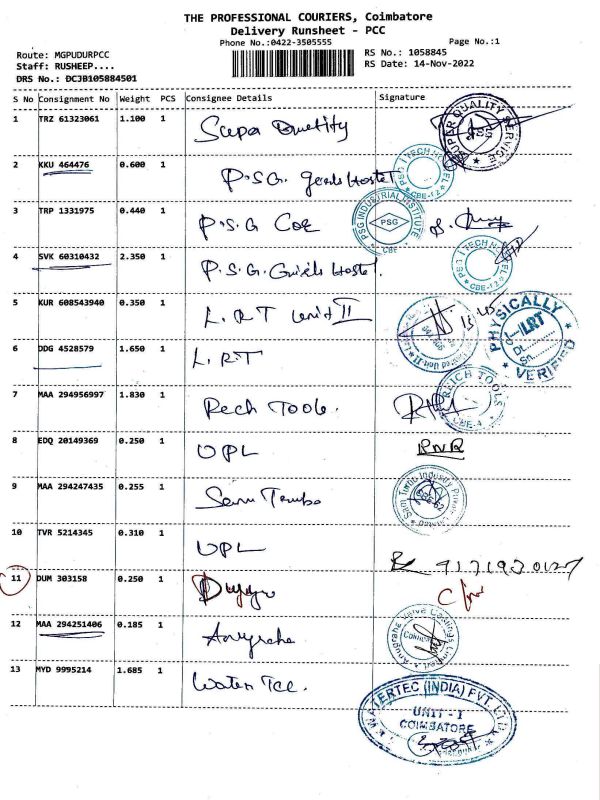 THE PROFESSIONAL COURIERS, Coimbatore
Delivery Runsheet - PCC
Phone No.:0422-3505555
Page No.:1
Route: MGPUDURPCC
RS No.: 1058845
Staff: RUSHEEP....
RS Date: 14-Nov-2022
DRS No.: DCJB105884501
S No Consignment No Weight PCS Consignee Details Signature
1 TRZ 61323061 1.100 1
SUPAR QUALITY SERVICE
2 KKU 464476 0.600 1 P.S.G. gents Hostel
PSG I TECH CBE-12
3 TRP 1331975 0.440 1 P.S.G COE
PSG INDUSTRIAL INSTITUTE PSG CBE
4 SVK 60310432 2.350 1 P.S.G. Hostel
PSG I TECH CBE-12
5 KUR 608543940 0.350 1 L.R.T Unit II 15.45
PHYSICALLY LRT Dt Sn VERIFIED
6 DDG 4528579 1.650 1 L.R.T
7 MAA 294956997 1.830 1 Rech Tools.
REICH TOOLS CBE-4
8 EDQ 20149369 0.250 1 UPL RNR
9 MAA 294247435 0.255 1 Sam Turbo
Sam Turbo Industry Private Limited
10 TVR 5214345 0.310 1 UPL
11 DUM 303158 0.250 1
12 MAA 294251406 0.185 1 Anugraha
Anugraha Valve Castings Limited
13 MYD 9995214 1.685 1 Water Tec.
WATERTEC (INDIA) PVT. LTD
UNIT - I
COIMBATORE